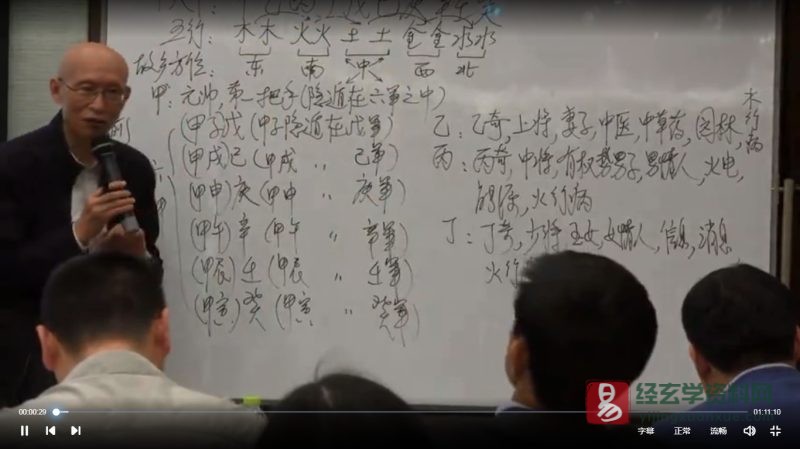 五行: 木木 火火 土土 金金 水水
故乡方位: 东 南 中 西 北
甲: 元帅,第一把手(隐遁在六军之中)
(甲子)戊(甲子隐遁在戊军)
(甲戌)己(甲戌 〃 己军)
(甲申)庚(甲申 〃 庚军)
(甲午)辛(甲午 〃 辛军)
(甲辰)壬(甲辰 〃 壬军)
(甲寅)癸(甲寅 〃 癸军)
乙: 乙奇,上将,妻子,中医,中草药,园林,木行病
丙: 丙奇,中将,有权势男子,男情人,火电,
火行病
丁: 丁奇,少将,玉女,女情人,信息,消息
火行
易 经玄学资料网
00:00:29
01:11:10
字幕 正常 流畅